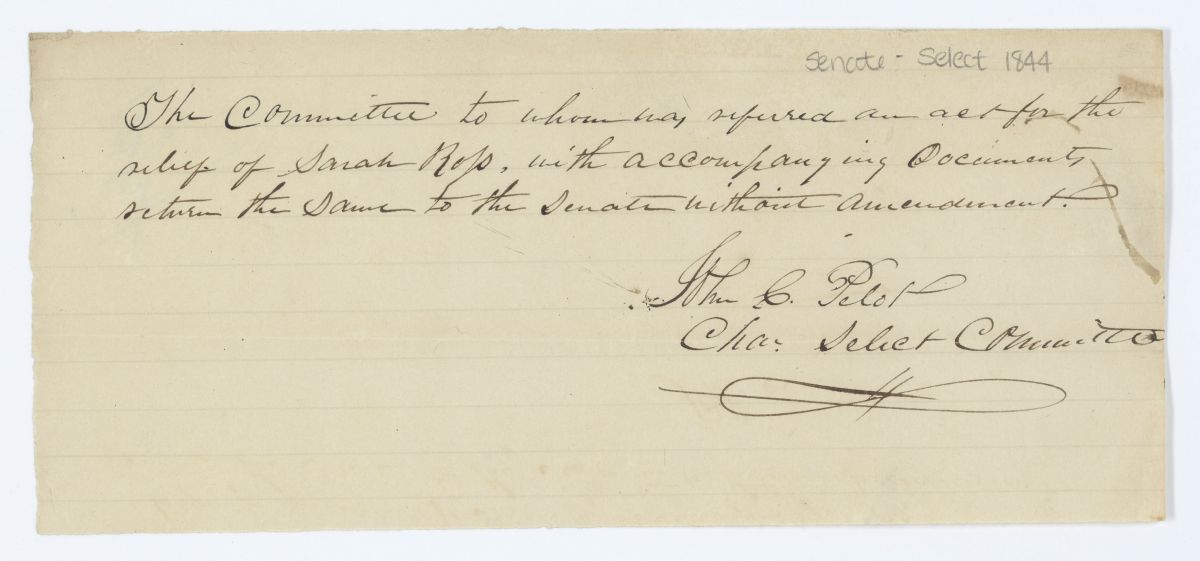 Senate - Select 1844
The Committee to whom was referred an act for the
relief of Sarah Ross, with accompanying Documents
return the same to the Senate without amendment.
John C. Pelot
Cha. Select Committee